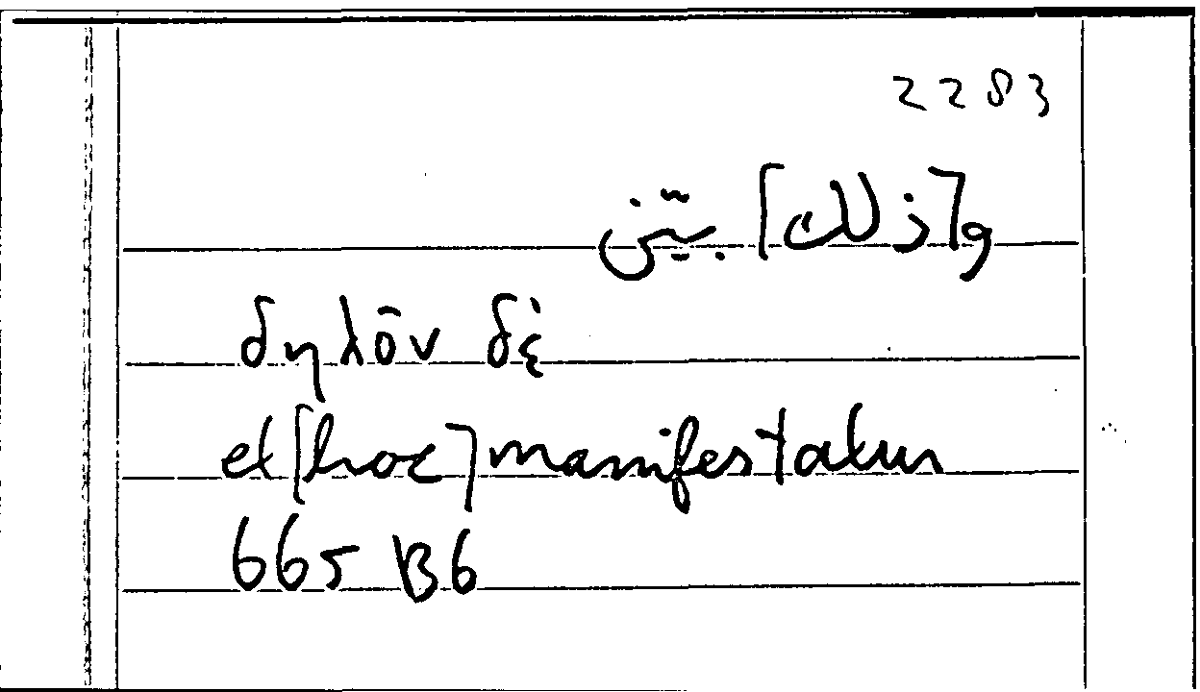 2283
و[ذلك] بيّن
δηλον δὲ
et [hoc] manifestatum
665 B6